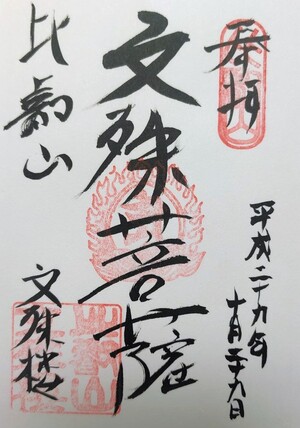 奉拝
平成二十九年
十月二十九日
文殊菩薩
比叡山
文殊楼